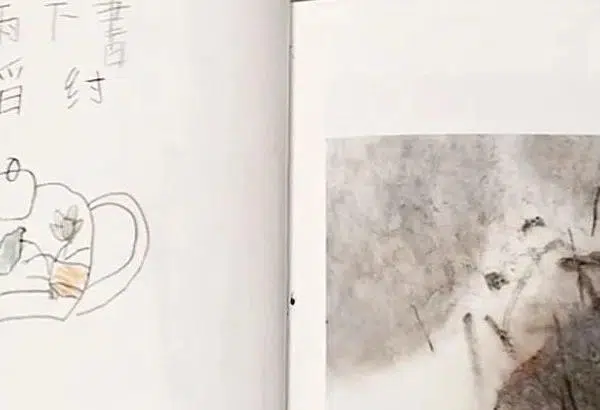 雨 下 書
纣